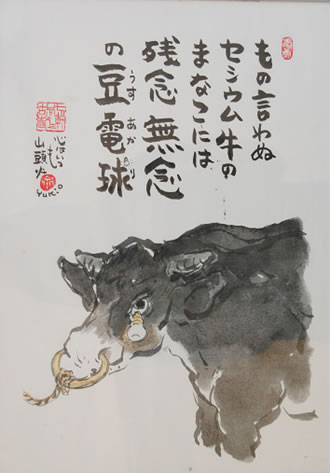 もの言わぬ
セシウム牛の
まなこには
残念無念
の豆電球
うす あか り
心はいつも
山頭火
Yukio